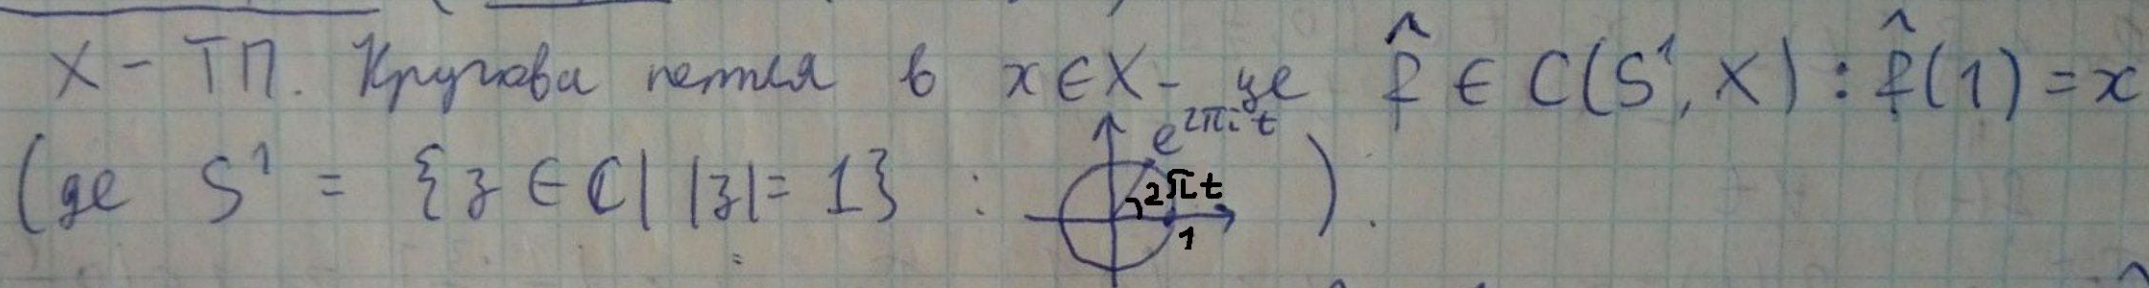 X – ТП. Кругова петля в x ∈ X – це f̂ ∈ C(S¹, X) : f̂(1) = x
(де S¹ = {z ∈ ℂ | |z| = 1} : e^{2πit} 2πt 1 ).